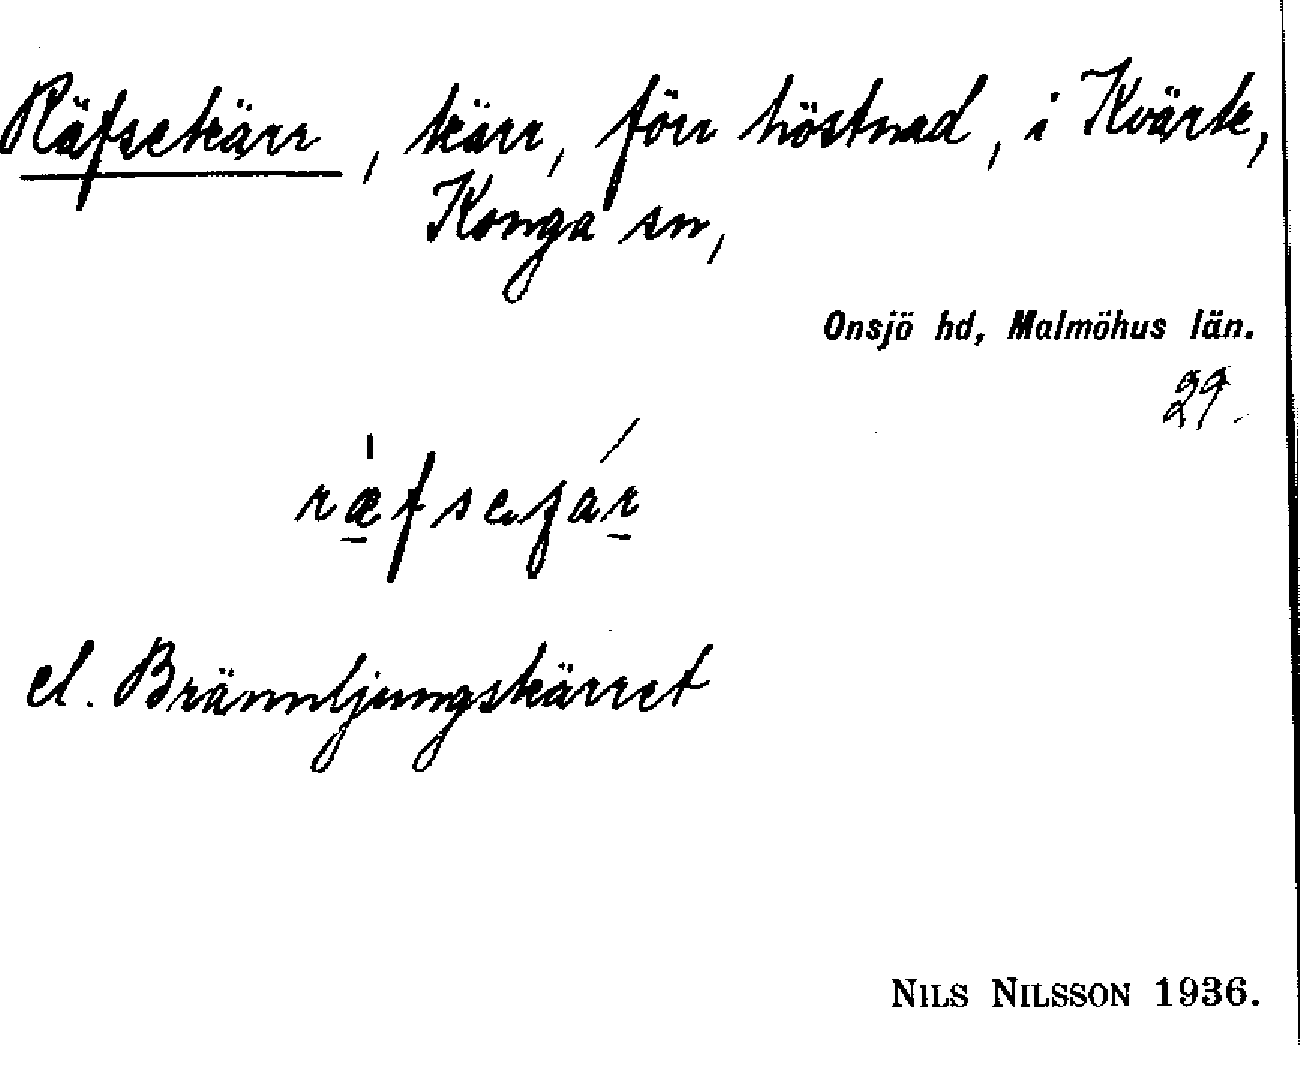 Räfsekärr, kärr, förr höstnad, i Kvärk,
Konga sn,
Onsjö hd, Malmöhus län.
29.
el. Brännljungskärret
NILS NILSSON 1936.